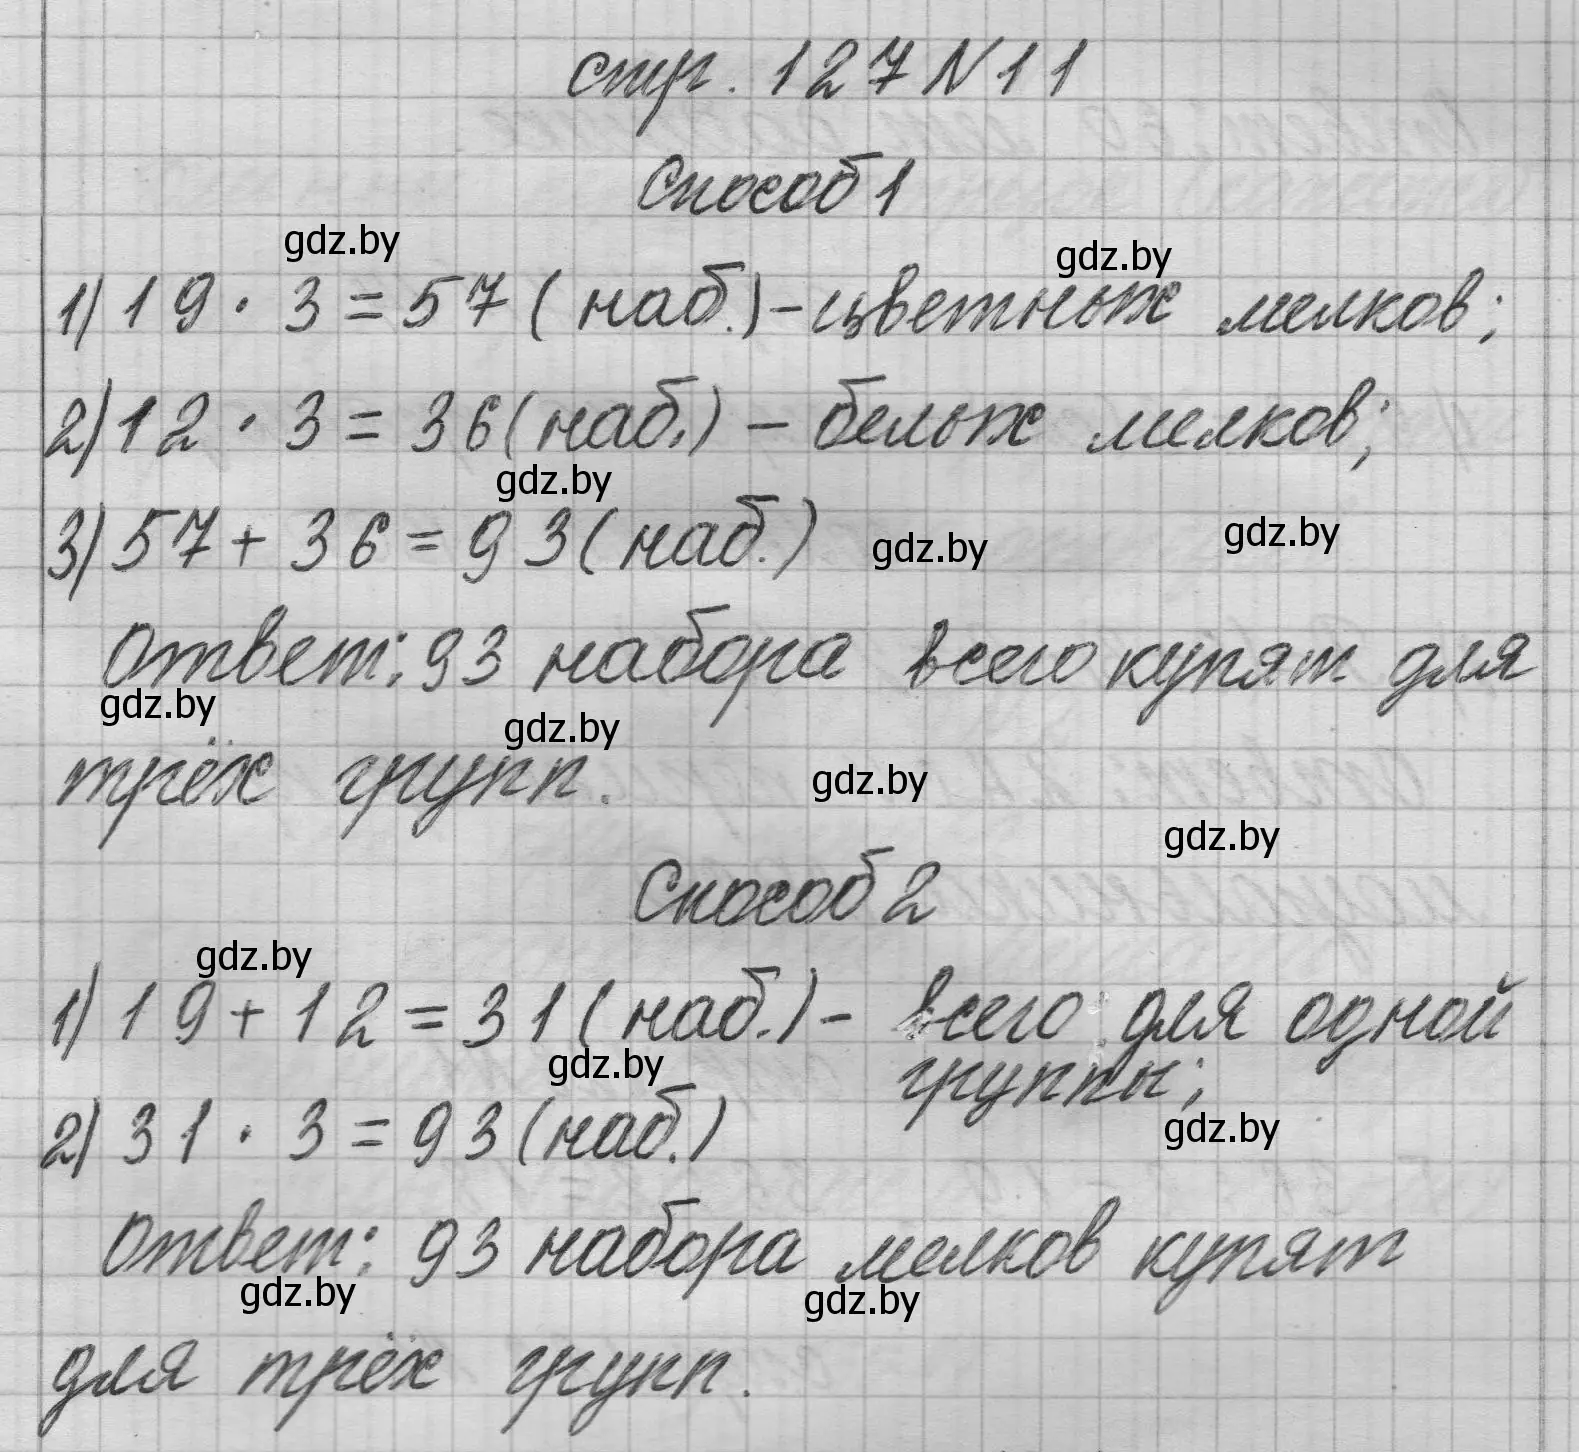 стр. 127 N 11
Способ 1
gdz.by
gdz.by
1) 19 · 3 = 57 (наб.) - цветных мелков;
2) 12 · 3 = 36 (наб.) - белых мелков;
gdz.by
3) 57 + 36 = 93 (наб.)
gdz.by
gdz.by
Ответ: 93 набора всего купят для
gdz.by
gdz.by
трёх групп.
gdz.by
gdz.by
Способ 2
gdz.by
1) 19 + 12 = 31 (наб.) - всего для одной
группы;
gdz.by
2) 31 · 3 = 93 (наб.)
gdz.by
Ответ: 93 набора мелков купят
gdz.by
gdz.by
для трёх групп.